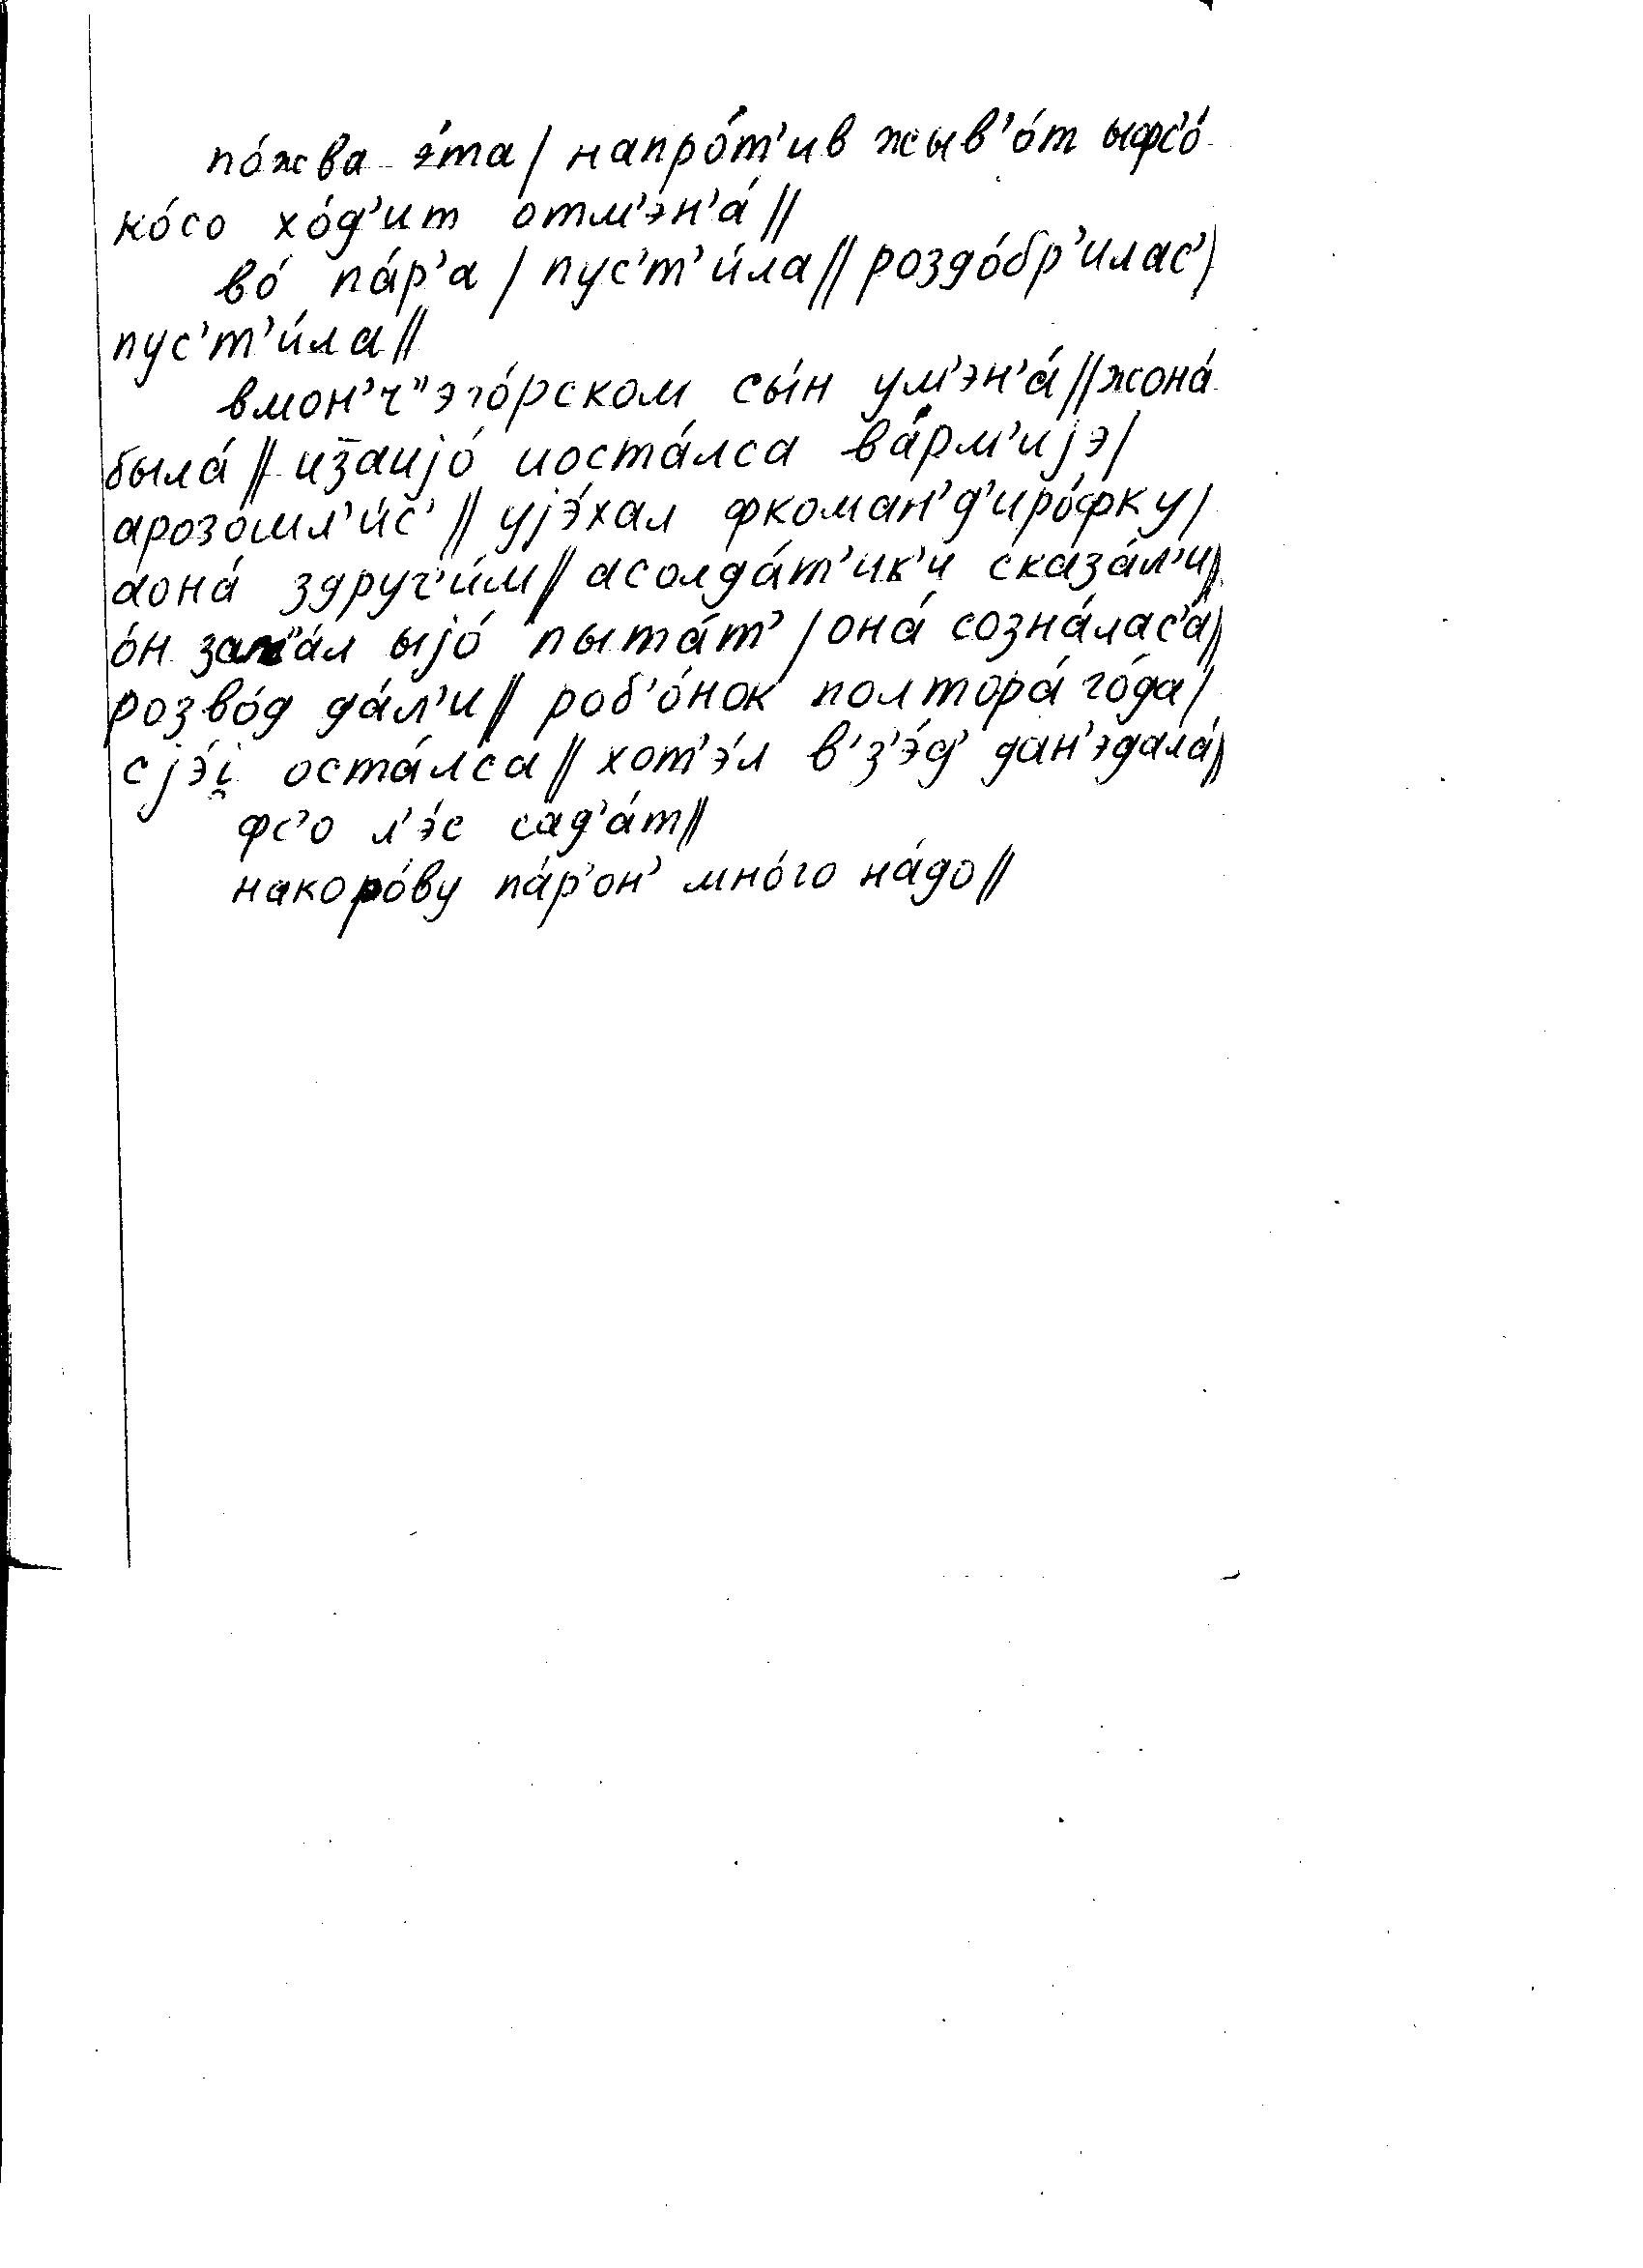 по́жва э́та / напро́т'ив жыв'о́т ыфс'о́
ко́со хо́д'ит отм'эн'а́ //
во́ па́р'а / пус'т'и́ла // роздо́бр'илас' /
пус'т'и́ла //
вмон'ч"эго́рском сы́н ум'эн'а́ // жона́
была́ // из̄аијо́ иоста́лса ва́рм'ијэ /
арозошл'и́с' // ујэ́хал фкоман'д'иро́фку /
аона́ здруг'и́м // асолда́т'ик'и сказа́л'и //
о́н зач"а́л ыјо́ пыта́т' / она́ созна́лас'а //
розво́д да́л'и // роб'о́нок полтора́ го́да /
сјэ́і̯ оста́лса // хот'э́л в'з'э́д' дан'эдала́ //
фс'о л'э́с сад'а́т //
накоро́ву па́р'он' мно́го на́до //